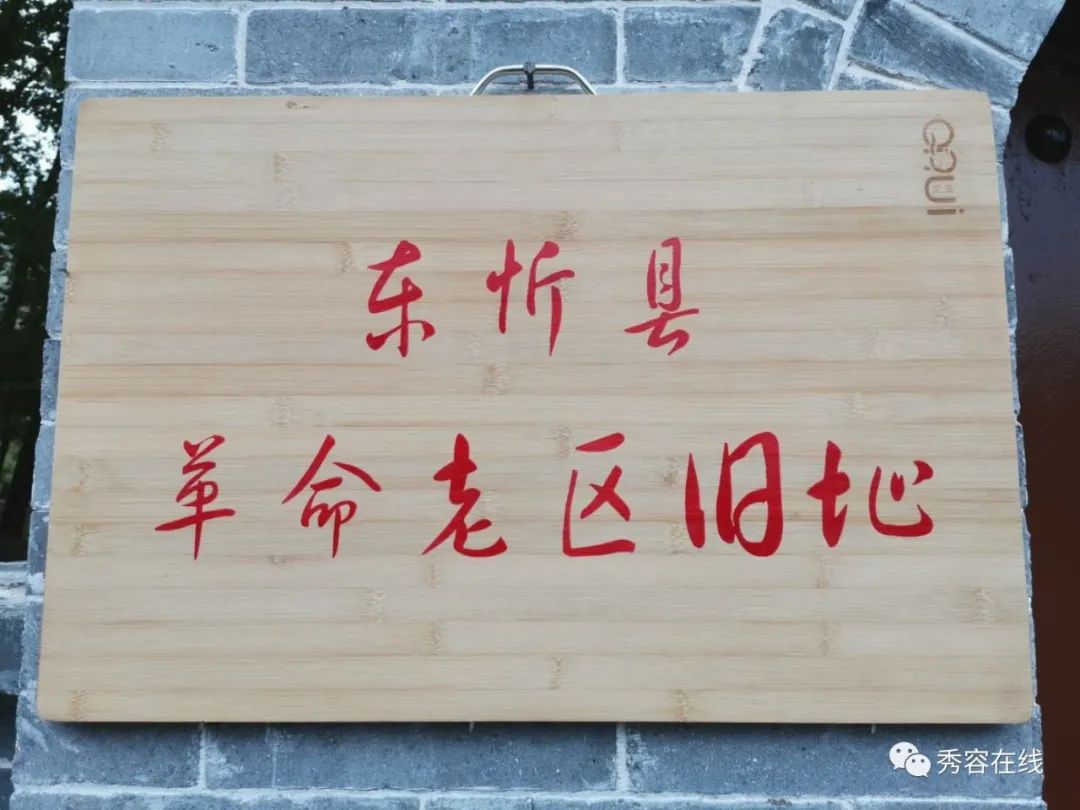 东忻县
革命老区旧址
秀容在线